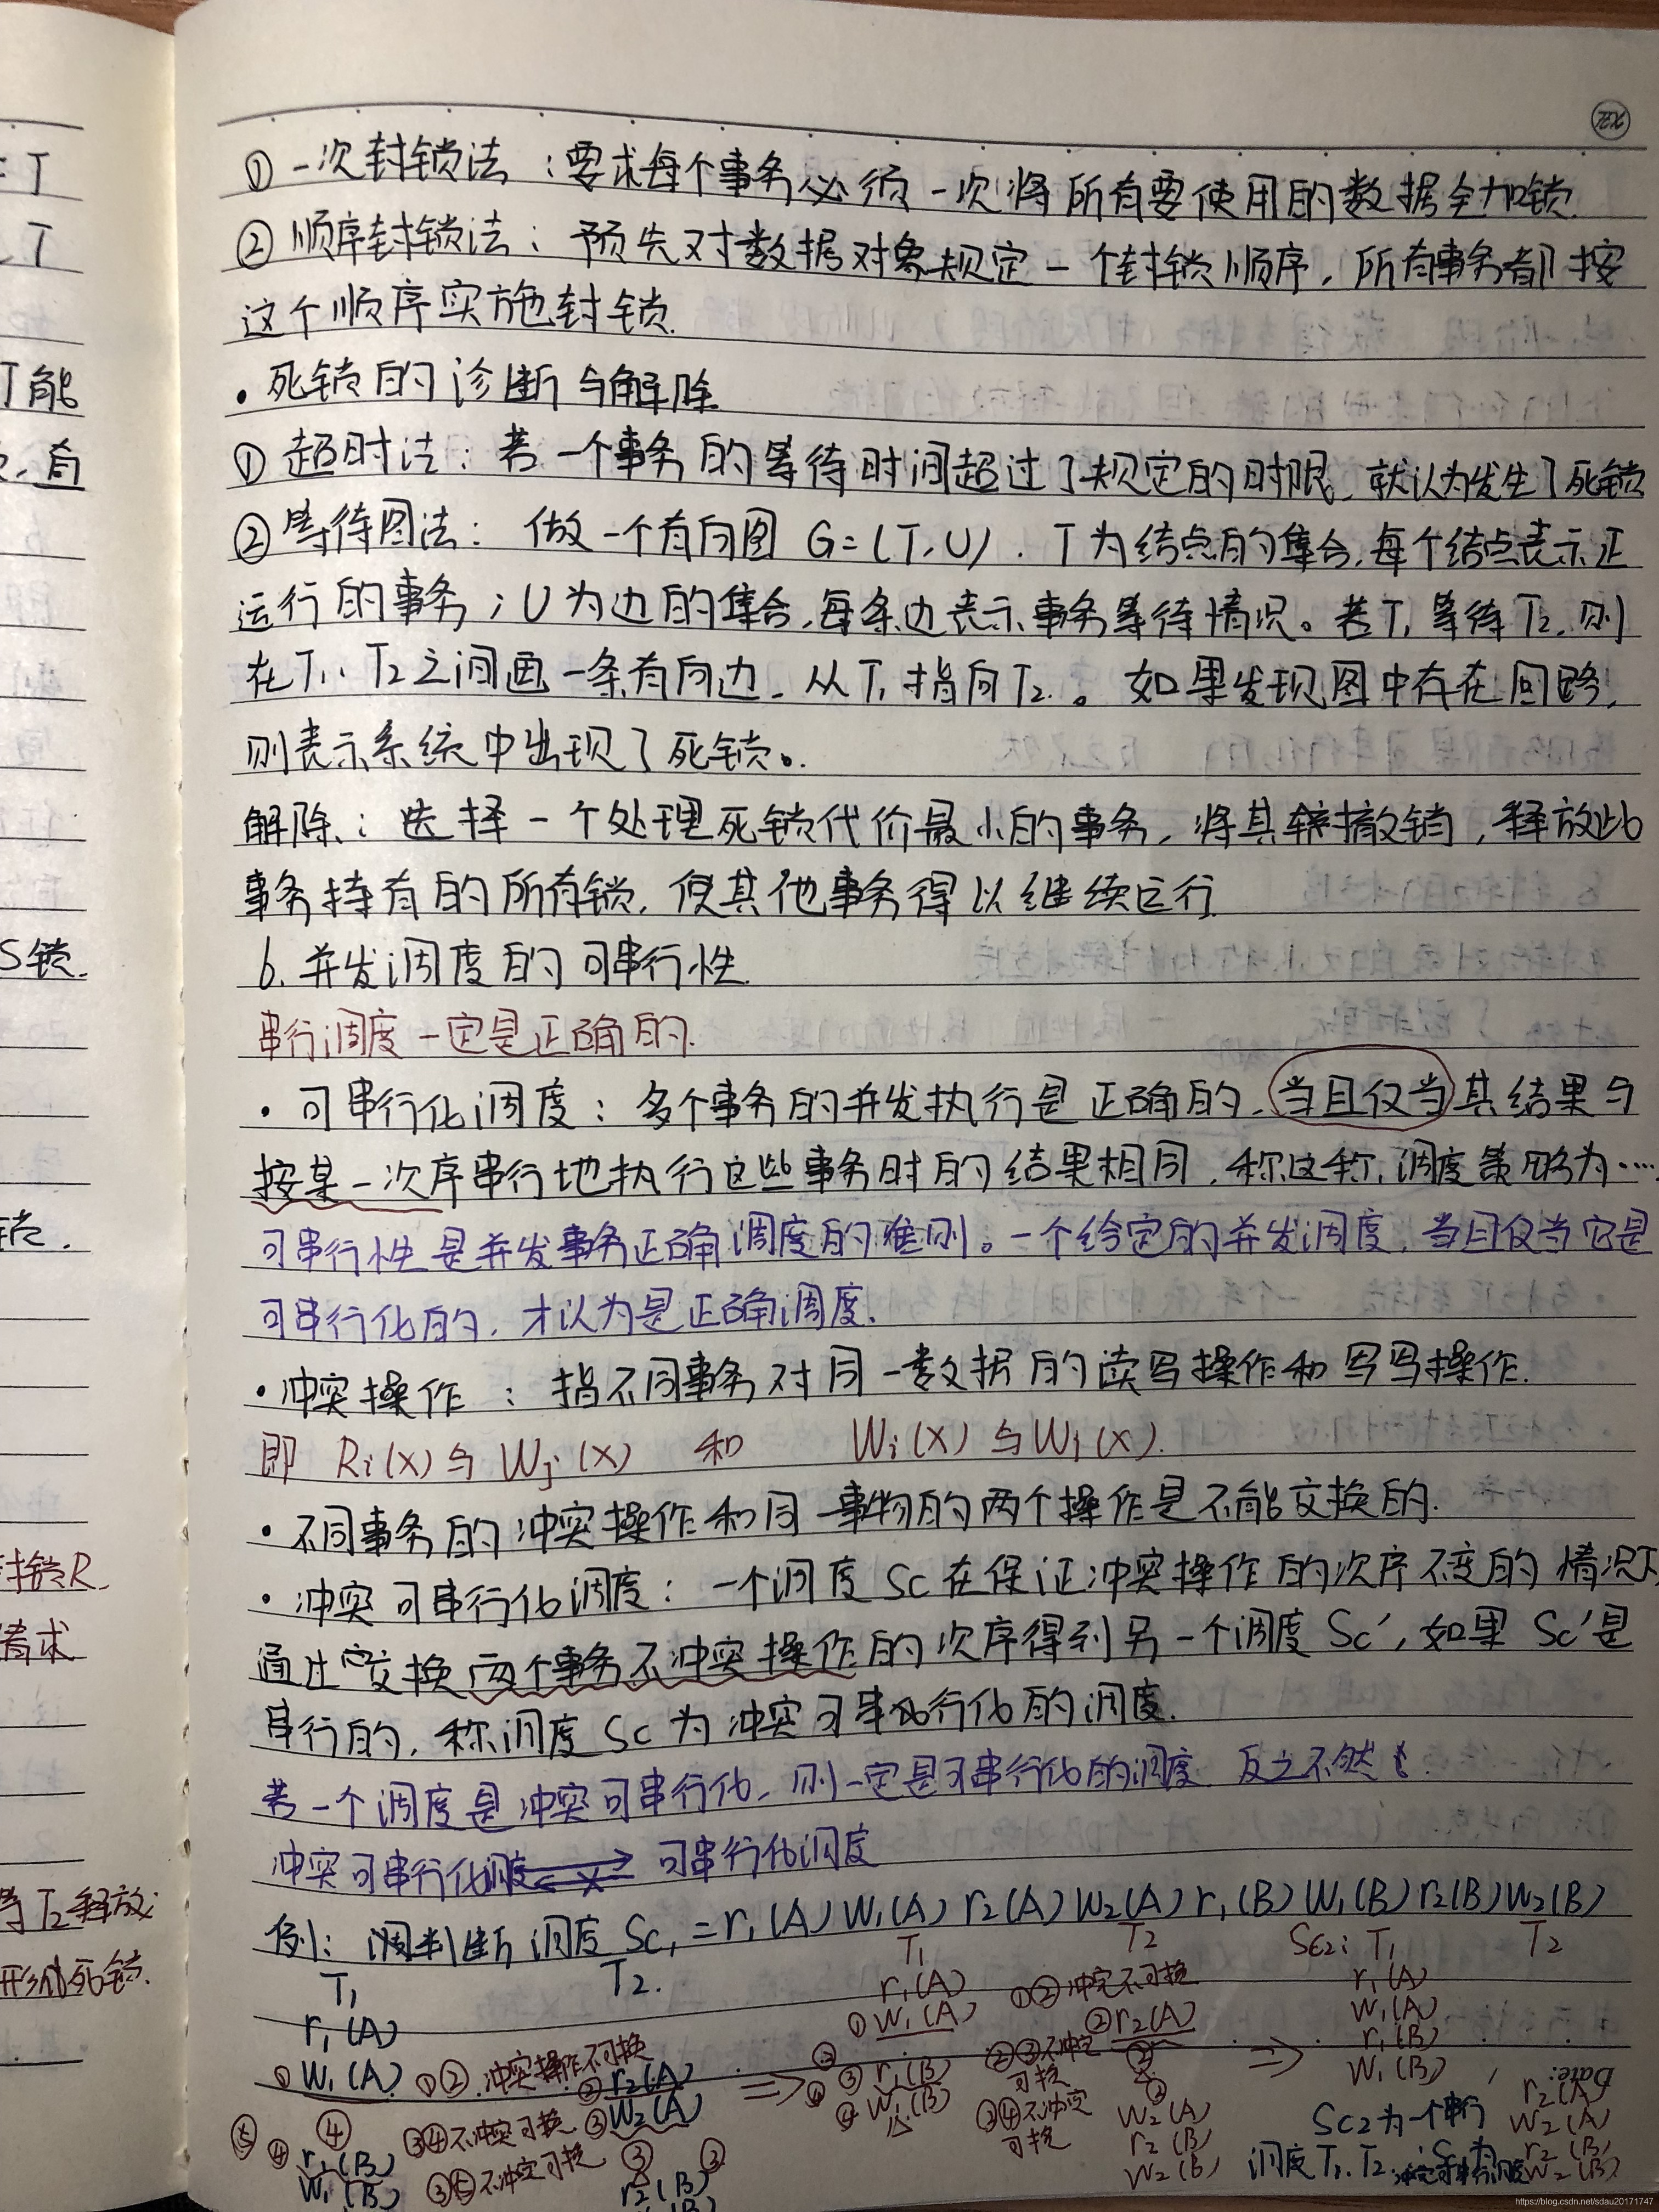 ① 一次封锁法：要求每个事务必须一次将所有要使用的数据全加锁.
② 顺序封锁法：预先对数据对象规定一个封锁顺序，所有事务都按
这个顺序实施封锁.
· 死锁的诊断与解除
① 超时法：若一个事务的等待时间超过了规定的时限，就认为发生了死锁
② 等待图法：做一个有向图 G=(T,U). T为结点的集合,每个结点表示正
运行的事务；U为边的集合,每条边表示事务等待情况。若T₁等待T₂,则
在T₁、T₂之间画一条有向边，从T₁指向T₂。如果发现图中存在回路,
则表示系统中出现了死锁。
解除：选择一个处理死锁代价最小的事务，将其撤销，释放此
事务持有的所有锁，使其他事务得以继续运行.
6. 并发调度的可串行性.
串行调度一定是正确的.
· 可串行化调度：多个事务的并发执行是正确的，当且仅当其结果与
按某一次序串行地执行这些事务时的结果相同，称这称调度策略为····
可串行性是并发事务正确调度的准则。一个给定的并发调度，当且仅当它是
可串行化的，才认为是正确调度.
· 冲突操作：指不同事务对同一数据的读写操作和写写操作.
即 Ri(X)与Wj(X) 和 Wi(X)与Wj(X).
· 不同事务的冲突操作和同一事物的两个操作是不能交换的.
· 冲突可串行化调度：一个调度Sc在保证冲突操作的次序不变的情况下,
通过交换两个事务不冲突操作的次序得到另一个调度Sc′,如果Sc′是
串行的，称调度Sc为冲突可串行化的调度.
若一个调度是冲突可串行化，则一定是可串行化的调度. 反之不然.
冲突可串行化调度 可串行化调度
例：判断调度Sc₁=r₁(A)W₁(A)r₂(A)W₂(A)r₁(B)W₁(B)r₂(B)W₂(B)
T₁ T₂.
r₁(A)
① W₁(A) ①② 冲突操作不可换 ② r₂(A)
③④不冲突可换 ③ W₂(A)
⑤ ④ r₁(B) ③⑤不冲突可换
W₁(B) r₂(B)
T₁ T₂
r₁(A) ①②冲突不可换
① W₁(A) ② r₂(A)
③ r₁(B) ②③不冲突可换
④ W₁(B) ③④不冲突可换
W₂(A)
r₂(B)
W₂(B)
⇒
Sc₂: T₁ T₂
r₁(A)
W₁(A)
r₁(B)
W₁(B)
r₂(A)
W₂(A)
r₂(B)
W₂(B)
Sc₂为一个串行
调度T₁.T₂.
Date:
T
T
能
有
S锁.
锁.
封锁R.
请求
等T₂释放
形成死锁.
https://blog.csdn.net/sdau20171747